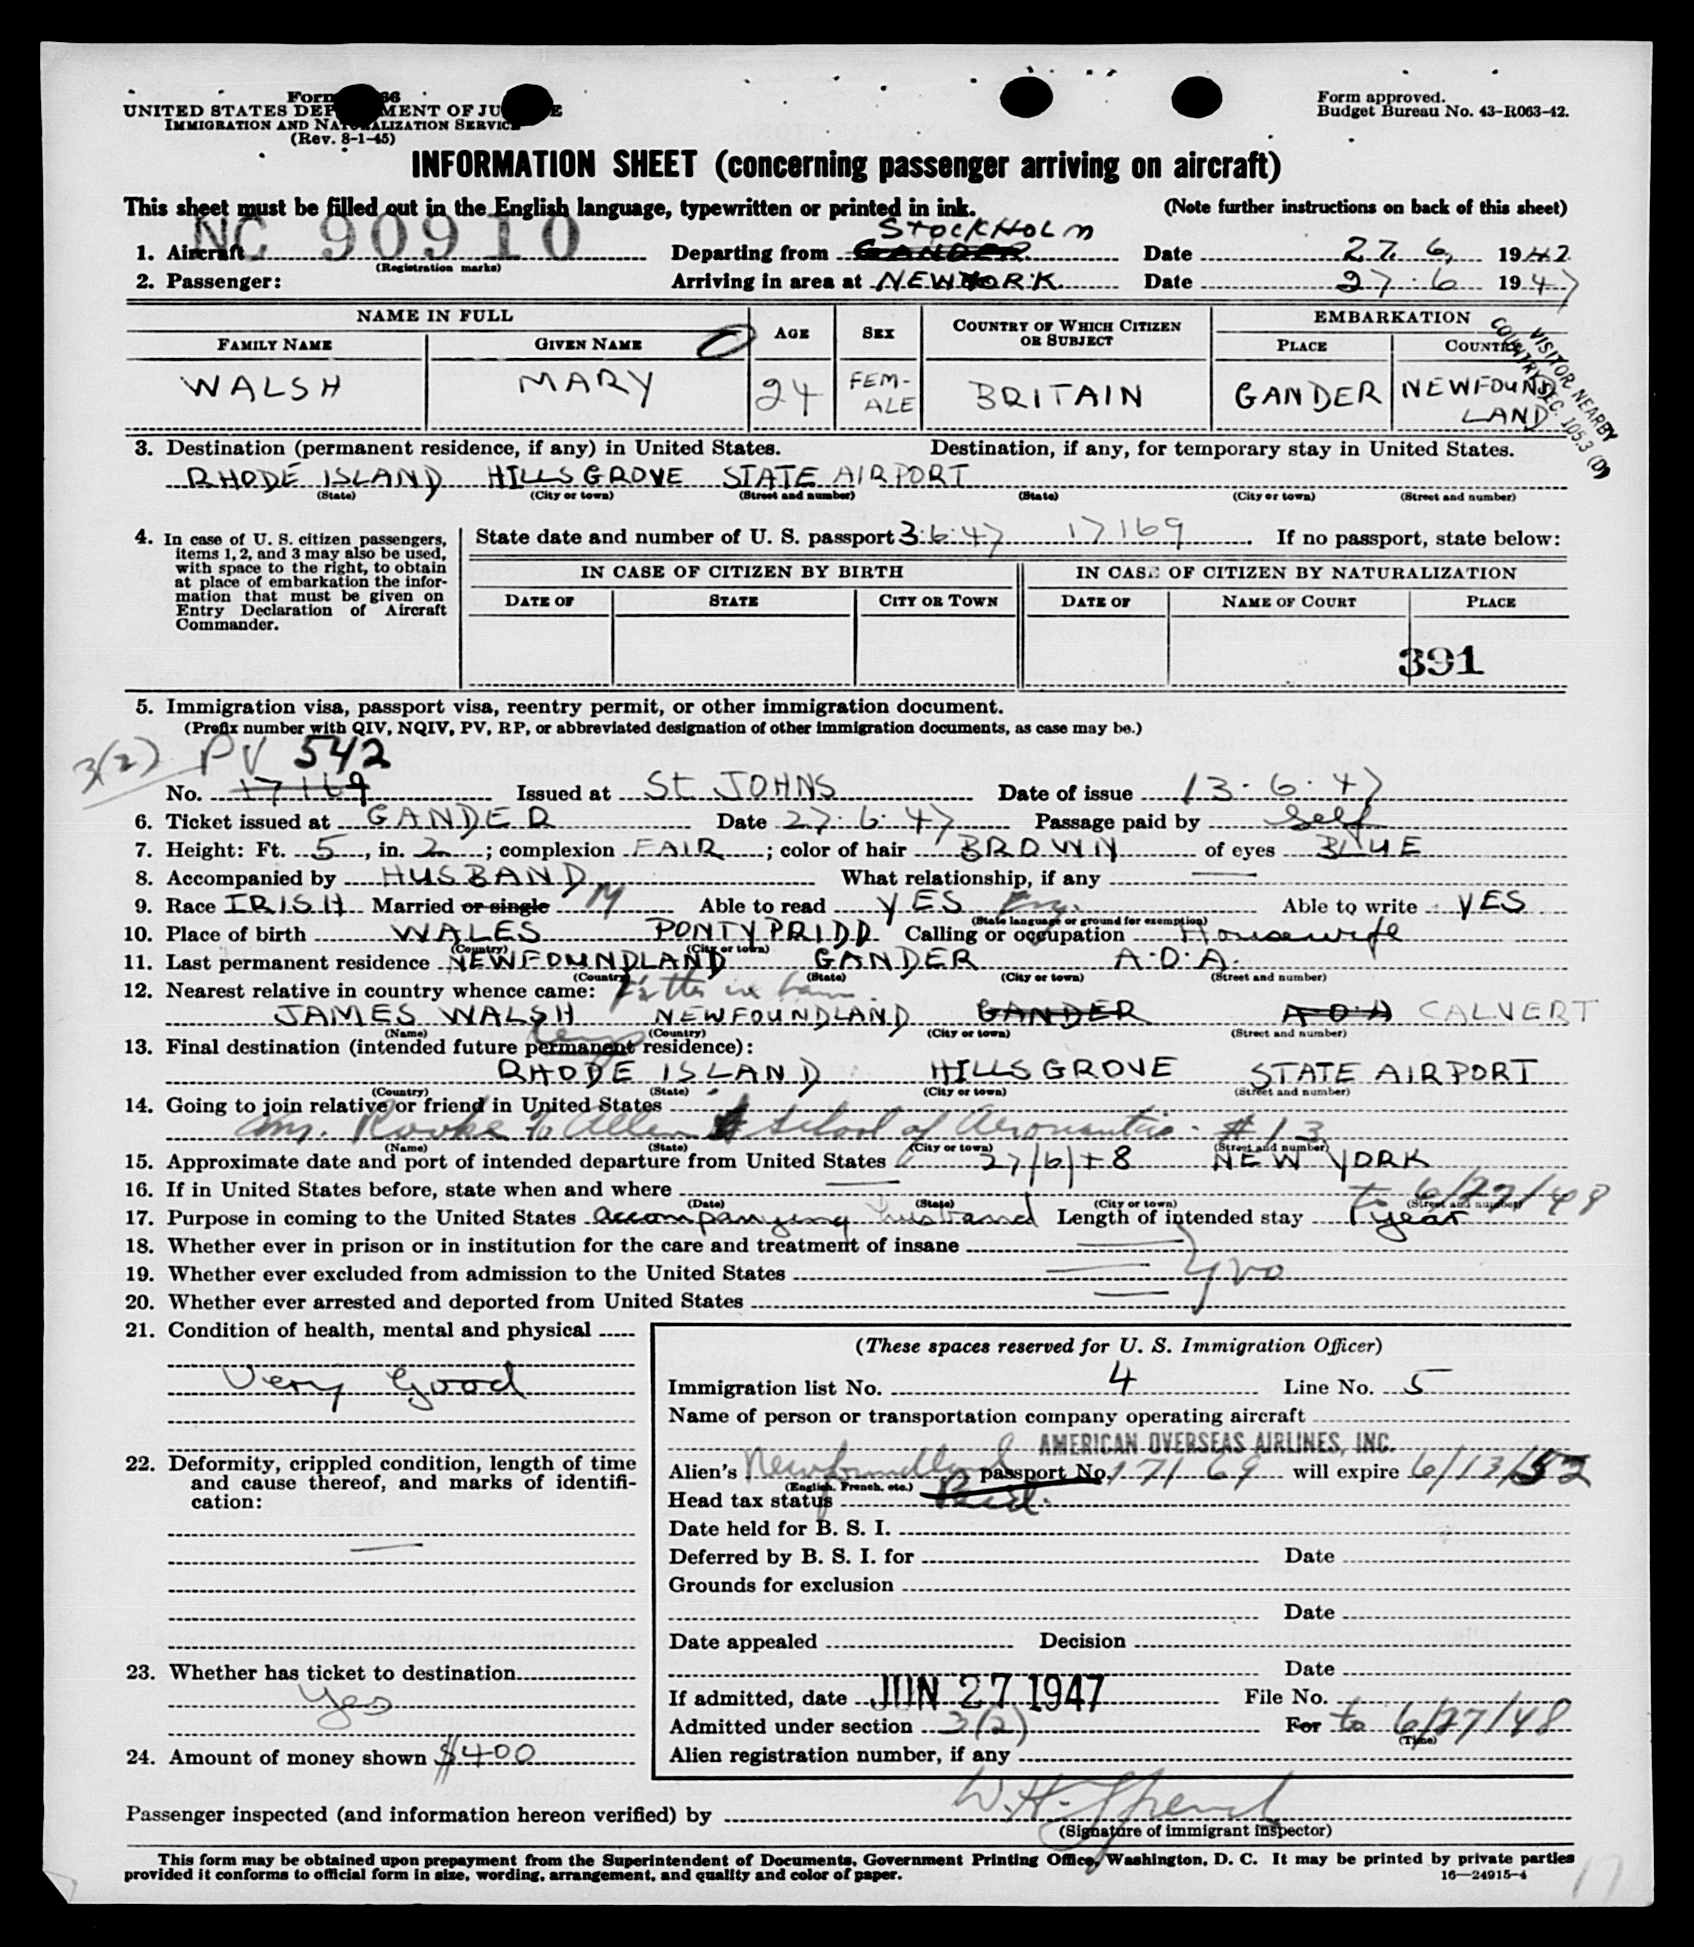 Form
UNITED STATES DEPARTMENT OF JUSTICE
IMMIGRATION AND NATURALIZATION SERVICE
(Rev. 8-1-45)
Form approved.
Budget Bureau No. 43-R063-42.
INFORMATION SHEET (concerning passenger arriving on aircraft)
This sheet must be filled out in the English language, typewritten or printed in ink.
(Note further instructions on back of this sheet)
1. Aircraft NC 90910 Departing from GANDER STOCKHOLM Date 27. 6. 1947
(Registration marks)
2. Passenger: Arriving in area at NEW YORK Date 27. 6 1947
NAME IN FULL AGE SEX COUNTRY OF WHICH CITIZEN OR SUBJECT EMBARKATION
FAMILY NAME GIVEN NAME PLACE COUNTRY
VISITOR NEARBY
COUNTRY SEC. 105.3 (D)
WALSH MARY 24 FEM-ALE BRITAIN GANDER NEWFOUNDLAND
3. Destination (permanent residence, if any) in United States. Destination, if any, for temporary stay in United States.
RHODE ISLAND HILLSGROVE STATE AIRPORT
(State) (City or town) (Street and number) (State) (City or town) (Street and number)
4. In case of U. S. citizen passengers, items 1, 2, and 3 may also be used, with space to the right, to obtain at place of embarkation the information that must be given on Entry Declaration of Aircraft Commander.
State date and number of U. S. passport 3·6·47 17169. If no passport, state below:
IN CASE OF CITIZEN BY BIRTH IN CASE OF CITIZEN BY NATURALIZATION
DATE OF STATE CITY OR TOWN DATE OF NAME OF COURT PLACE
391
5. Immigration visa, passport visa, reentry permit, or other immigration document.
(Prefix number with QIV, NQIV, PV, RP, or abbreviated designation of other immigration documents, as case may be.)
3(2) PV 542
No. 17169 Issued at St JOHNS Date of issue 13·6·47
6. Ticket issued at GANDER Date 27·6·47 Passage paid by Self
7. Height: Ft. 5, in. 2; complexion FAIR; color of hair BROWN of eyes BLUE
8. Accompanied by HUSBAND What relationship, if any —
9. Race IRISH Married or single M Able to read YES Eng. Able to write YES
(State language or ground for exemption)
10. Place of birth WALES PONTYPRIDD Calling or occupation Housewife
(Country) (City or town)
11. Last permanent residence NEWFOUNDLAND GANDER A·O·A.
(Country) (State) (City or town) (Street and number)
12. Nearest relative in country whence came:
JAMES WALSH NEWFOUNDLAND GANDER A·O·A CALVERT
(Name) (Country) (City or town) (Street and number)
13. Final destination (intended future permanent residence):
RHODE ISLAND HILLSGROVE STATE AIRPORT
(Country) (State) (City or town) (Street and number)
14. Going to join relative or friend in United States
Rooke % Allen School of Aeronautics - #13
(Name) (State) (City or town) (Street and number)
15. Approximate date and port of intended departure from United States 27/6/48 NEW YORK
16. If in United States before, state when and where —
(Date) (State) (City or town) (Street and number)
to 6/27/48
17. Purpose in coming to the United States accompanying husband Length of intended stay 1 year
18. Whether ever in prison or in institution for the care and treatment of insane —
19. Whether ever excluded from admission to the United States — } no
20. Whether ever arrested and deported from United States —
21. Condition of health, mental and physical
Very Good
22. Deformity, crippled condition, length of time and cause thereof, and marks of identification:
—
23. Whether has ticket to destination
Yes
24. Amount of money shown $400
(These spaces reserved for U. S. Immigration Officer)
Immigration list No. 4 Line No. 5
Name of person or transportation company operating aircraft
AMERICAN OVERSEAS AIRLINES, INC.
Alien's Newfoundland passport No. 17169 will expire 6/13/52
(English, French, etc.)
Head tax status Paid.
Date held for B. S. I.
Deferred by B. S. I. for Date
Grounds for exclusion
Date
Date appealed Decision
Date
If admitted, date JUN 27 1947 File No.
Admitted under section 3(2) For to 6/27/48
(Time)
Alien registration number, if any
Passenger inspected (and information hereon verified) by W. H.
(Signature of immigrant inspector)
This form may be obtained upon prepayment from the Superintendent of Documents, Government Printing Office, Washington, D. C. It may be printed by private parties
provided it conforms to official form in size, wording, arrangement, and quality and color of paper.
16—24915-4
17